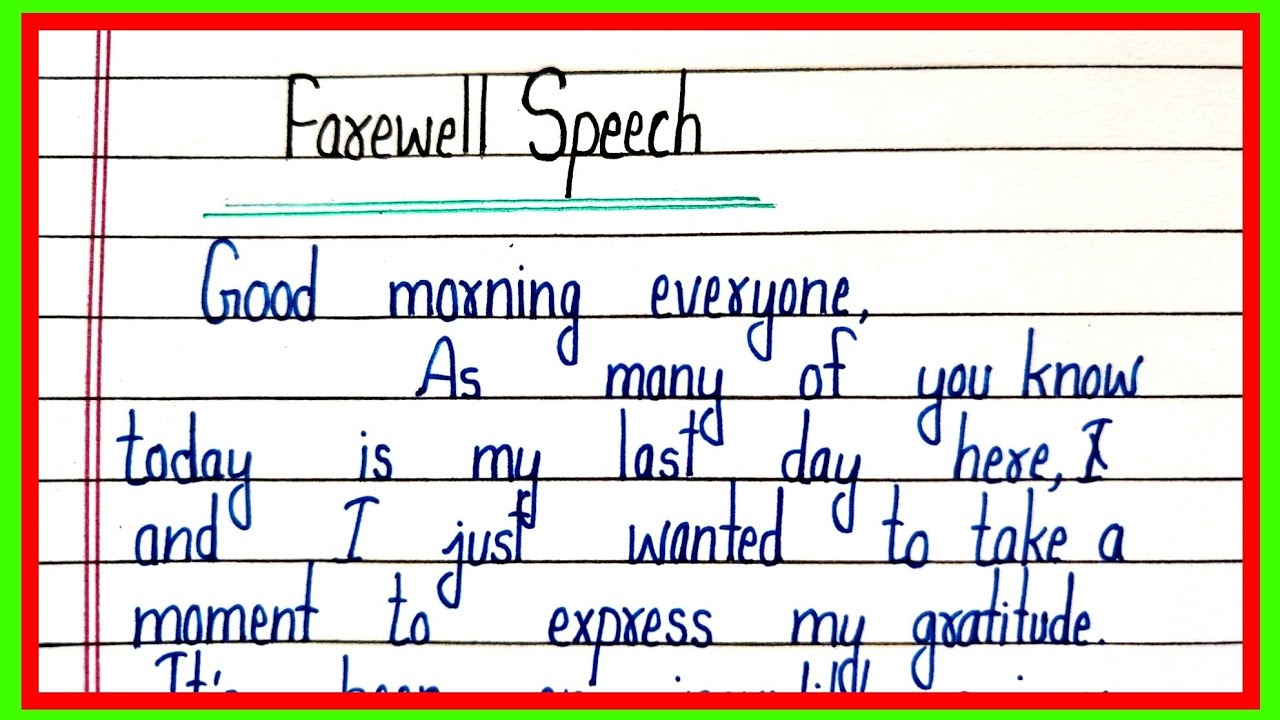 Farewell Speech
Good morning everyone,
As many of you know
today is my last day here, I
and I just wanted to take a
moment to express my gratitude.
It's been